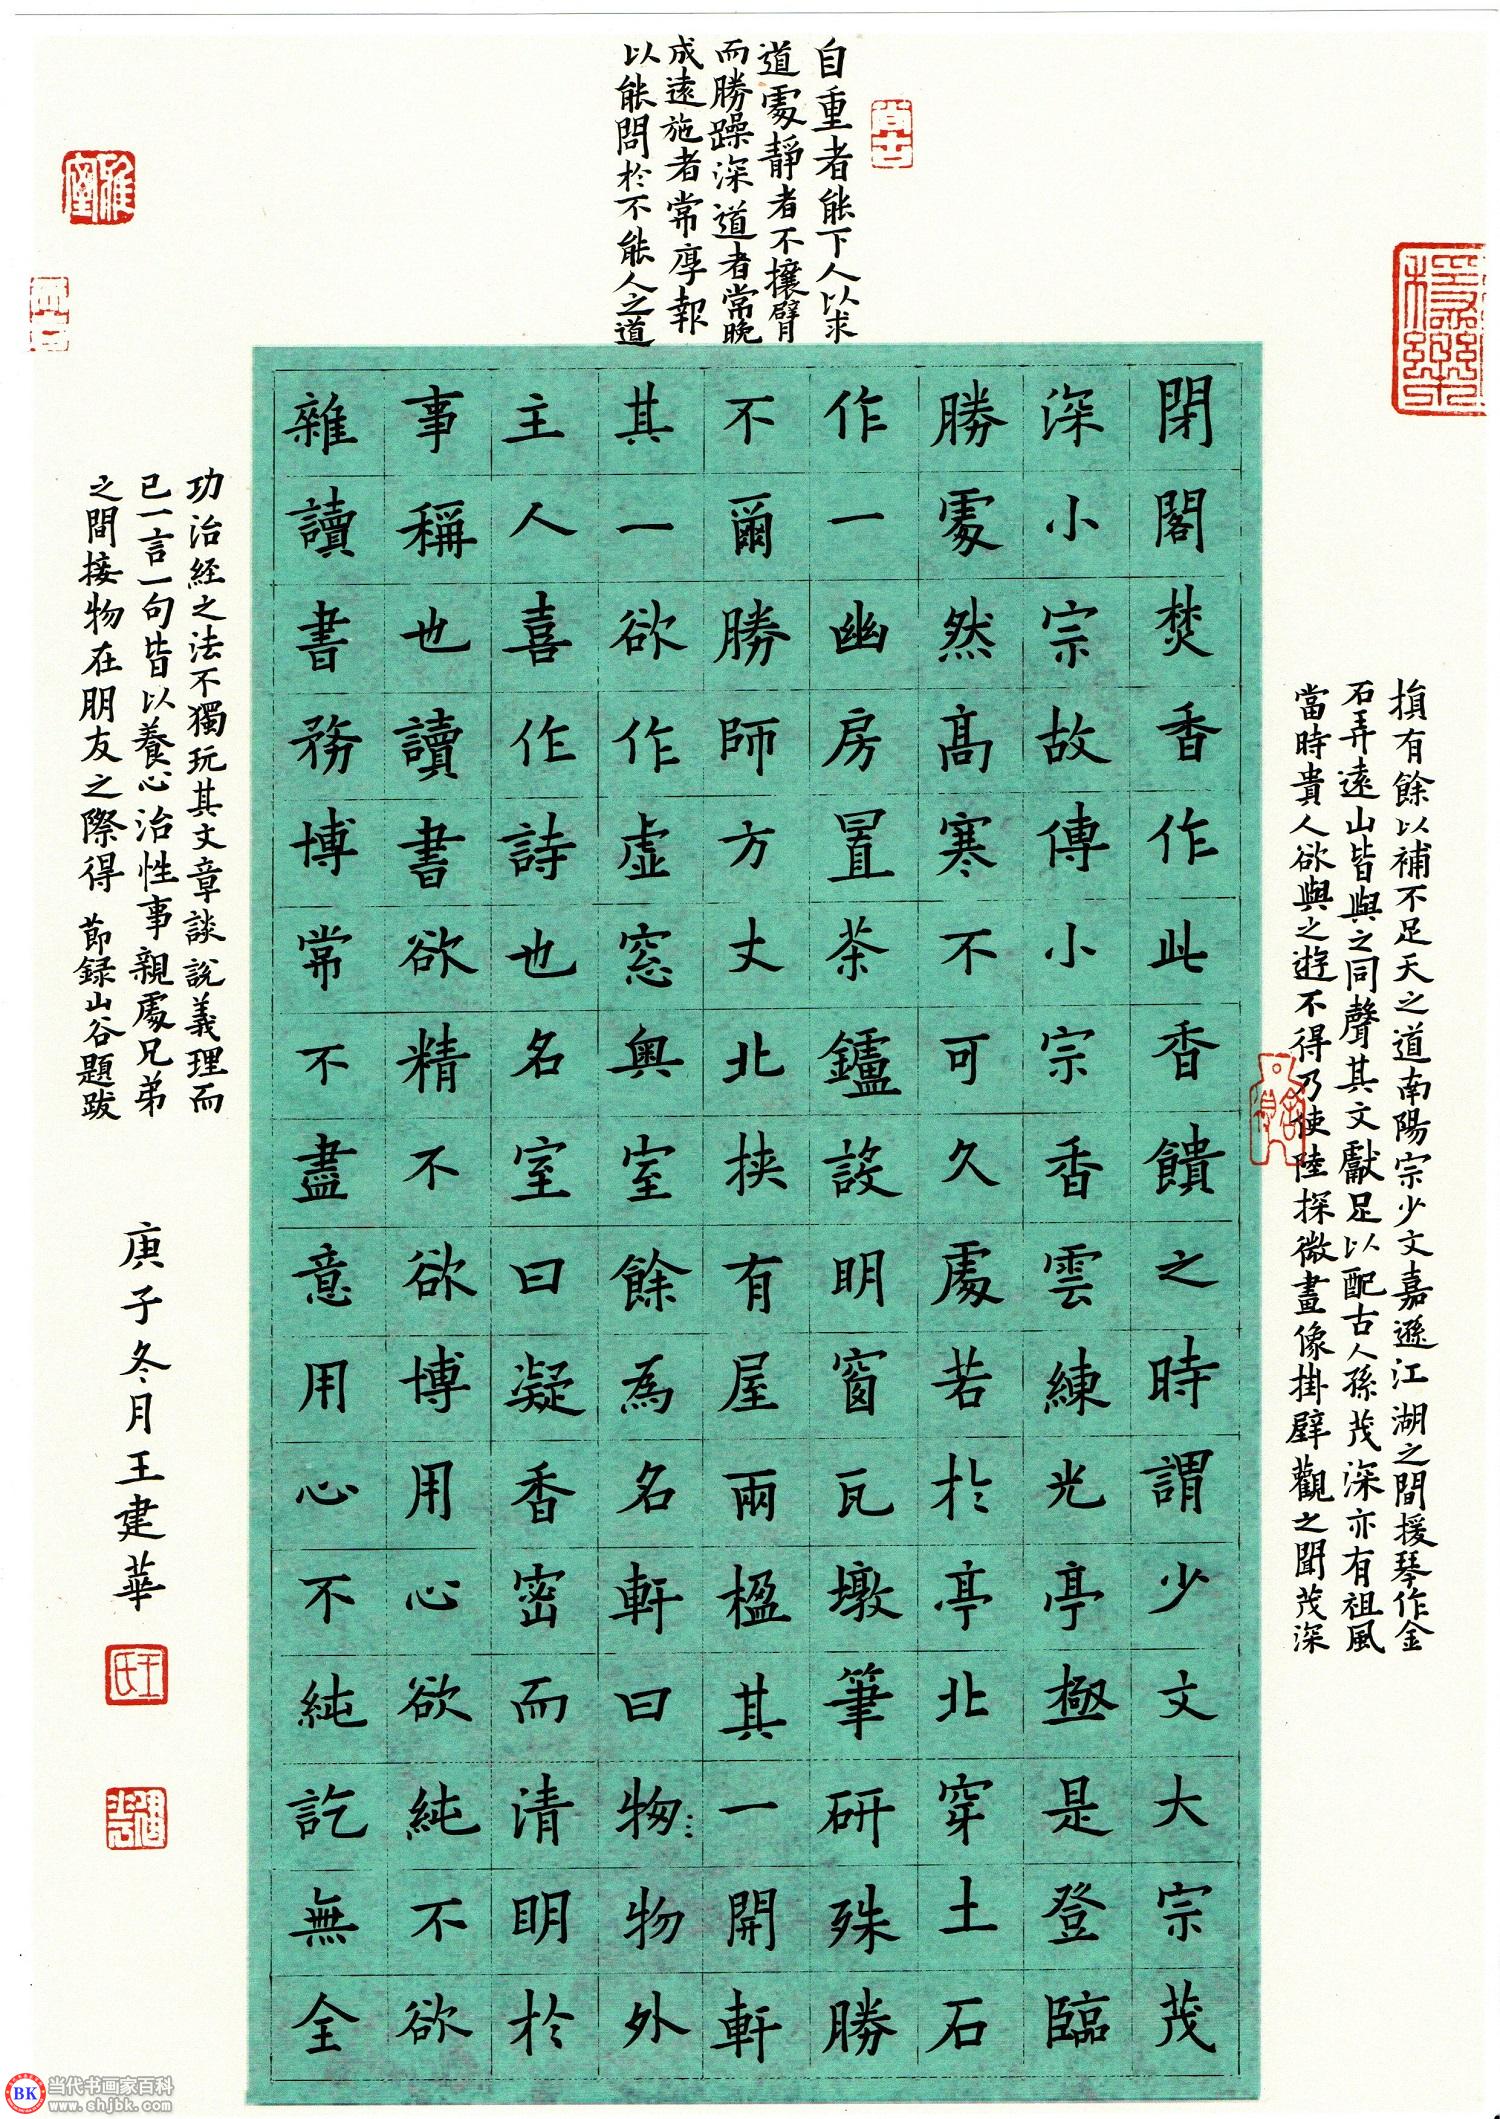 自重者能下人以求
道處靜者不攘臂
而勝躁深道者常晚
成遠施者常厚報
以能問於不能人之道
損有餘以補不足天之道南陽宗少文嘉遯江湖之間援琴作金
石弄遠山皆與之同聲其文獻足以配古人孫茂深亦有祖風
當時貴人欲與之遊不得乃使陸探微畫像掛壁觀之聞茂深
閉閣焚香作此香饋之時謂少文大宗茂
深小宗故傳小宗香雲練光亭極是登臨
勝處然高寒不可久處若於亭北穿土石
作一幽房置茶鑪設明窗瓦墩筆研殊勝
不爾勝師方丈北挾有屋兩楹其一開軒
其一欲作虛窓奧室餘為名軒曰物物外
主人喜作詩也名室曰凝香密而清明於
事稱也讀書欲精不欲博用心欲純不欲
雜讀書務博常不盡意用心不純訖無全
功治經之法不獨玩其文章談說義理而
已一言一句皆以養心治性事親處兄弟
之間接物在朋友之際得 節録山谷題跋
庚子冬月王建華
王氏
BK 当代书画家百科
www.shjbk.com